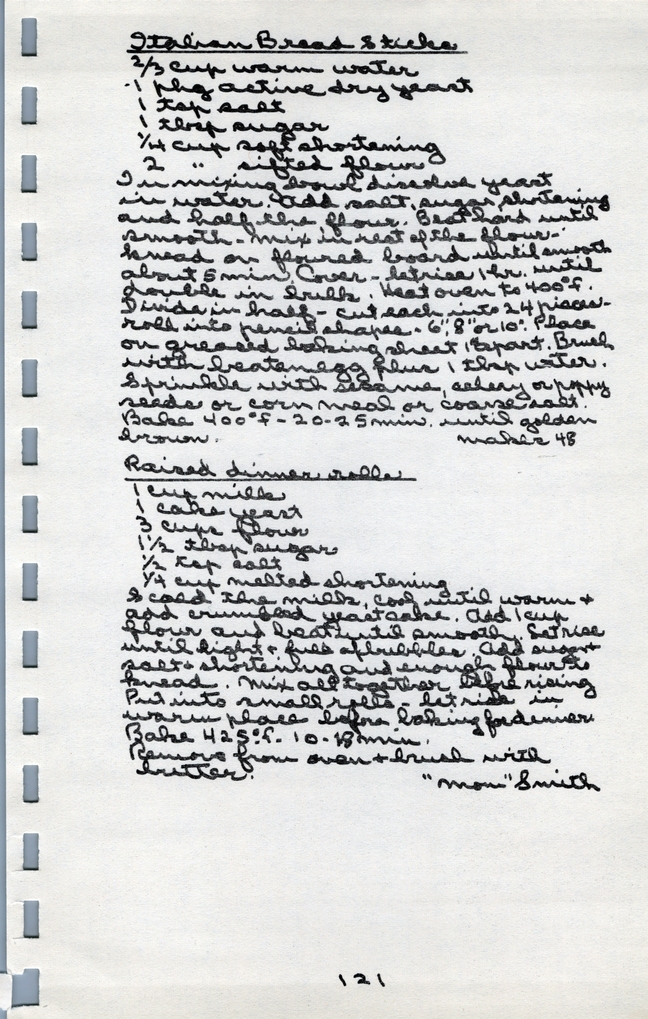 Italian Bread Sticks
2/3 cup warm water
1 pkg active dry yeast
1 tsp salt
1 tbsp sugar
1/4 cup soft shortening
2 " sifted flour
In mixing bowl dissolve yeast
in water. Add salt, sugar, shortening
and half the flour. Beat hard until
smooth - mix in rest of the flour -
knead on floured board until smooth
about 5 min. Cover - let rise 1 hr. until
double in bulk. Heat oven to 400°f.
Divide in half - cut each into 24 pieces -
roll into pencil shapes - 6", 8" or 10". Place
on greased baking sheet 1" apart. Brush
with beaten egg plus 1 tbsp water.
Sprinkle with sesame, celery or poppy
seeds or corn meal or coarse salt.
Bake 400°f - 20-25 min. until golden
brown. makes 48
Raised dinner rolls
1 cup milk
1 cake yeast
3 cups flour
1 1/2 tbsp sugar
1/2 tsp salt
1/4 cup melted shortening
Scald the milk, cool until warm +
add crumbled yeast cake. Add 1 cup
flour and beat until smooth. Let rise
until light + full of bubbles. Add sugar +
salt + shortening and enough flour to
knead. Mix all together before rising
Put into small rolls - let rise in
warm place before baking for dinner.
Bake 425°f. 10-18 min.
Remove from oven + brush with
butter. "Mom" Smith
121